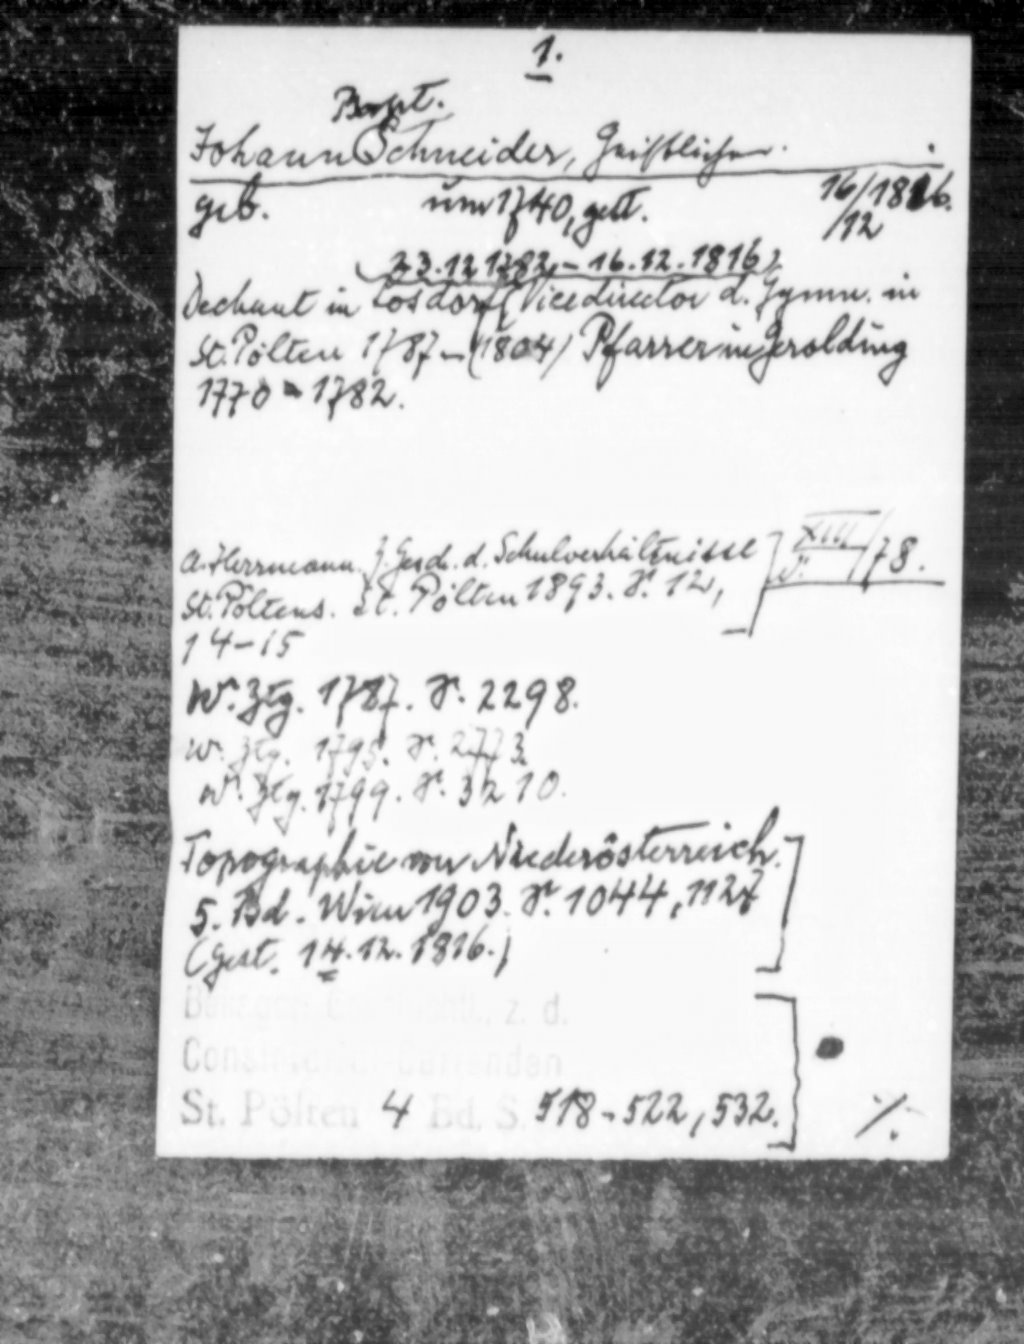 1.
Bapt.
Johann Schneider, Geistlicher.
geb. um 1740, gest. 16/12 1816.
(23.12.1782 – 16.12.1816)
Dechant in Losdorf (Vicedirector d. Gymn. in
St. Pölten 1787 – (1804) Pfarrer in Gerolding
1770 – 1782.
A. Herrmann. z. Gesch. d. Schulverhältnisse
St. Pöltens. St. Pölten 1893. S. 12,
14–15
XIII/78.
W. Ztg. 1787. S. 2298.
W. Ztg. 1795. S. 2773
W. Ztg. 1799. S. 3210.
Topographie von Niederösterreich.
5. Bd. Wien 1903. S. 1044, 1127
(Gest. 14.12.1816.)
z. d.
St. Pölten 4 Bd. S. 518-522, 532.
%.